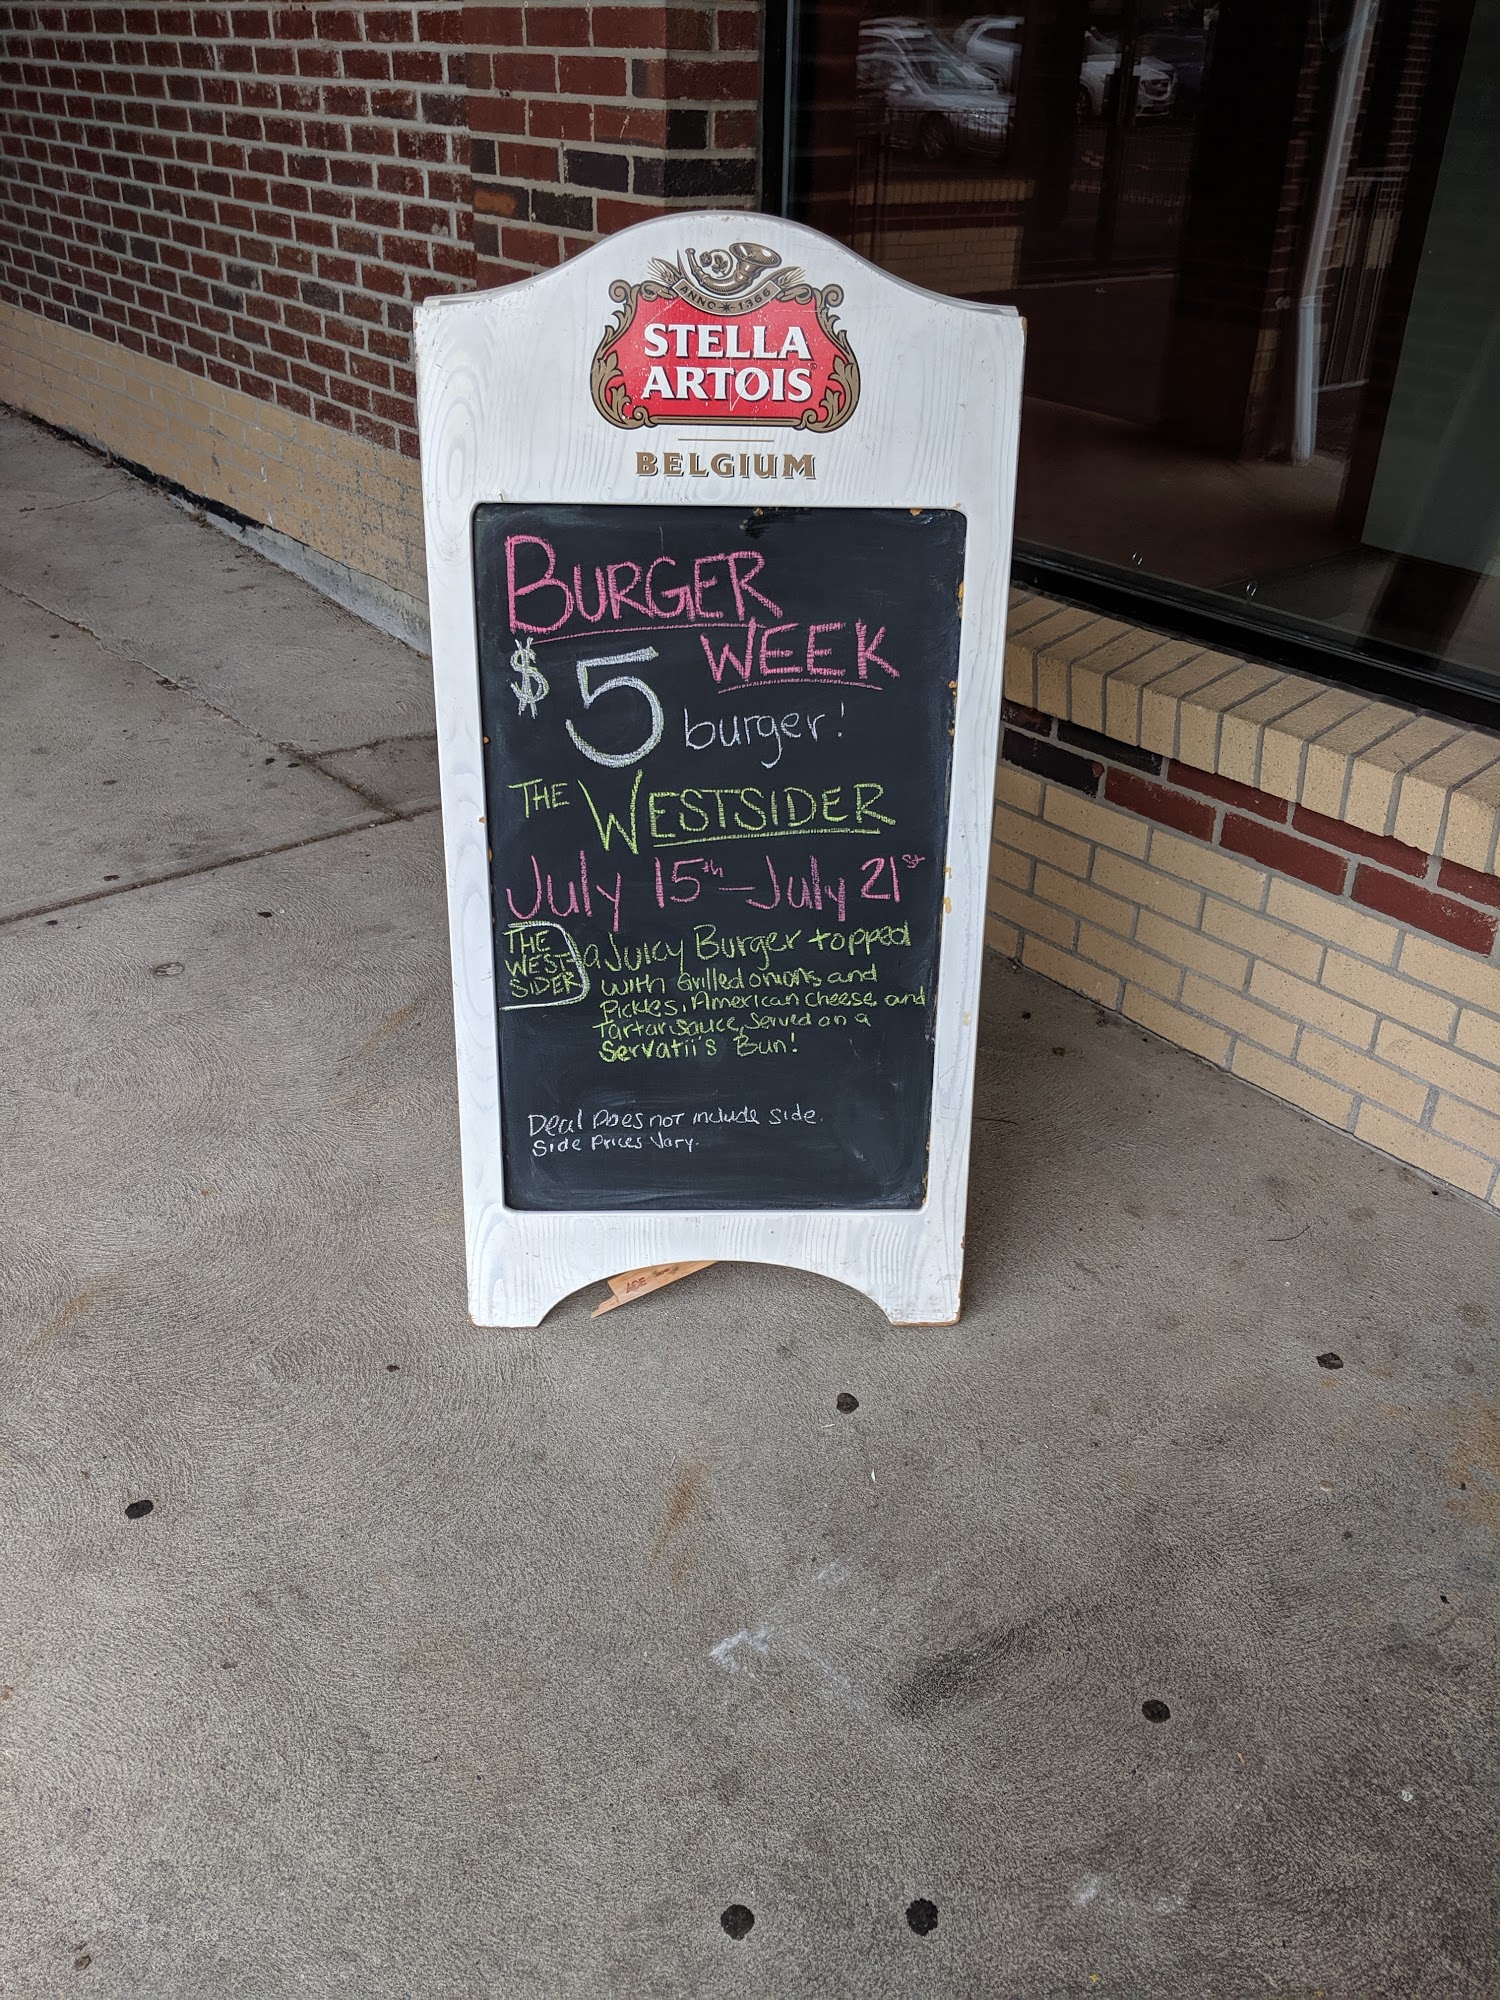 ANNO 1366
STELLA
ARTOIS
BELGIUM
BURGER
WEEK
$5 burger!
THE WESTSIDER
July 15th - July 21st
THE
WEST-
SIDER
a Juicy Burger topped
with Grilled onions and
Pickles, American cheese, and
Tartar sauce, Served on a
Servatii's Bun!
Deal Does not include side.
Side Prices Vary.
ACE